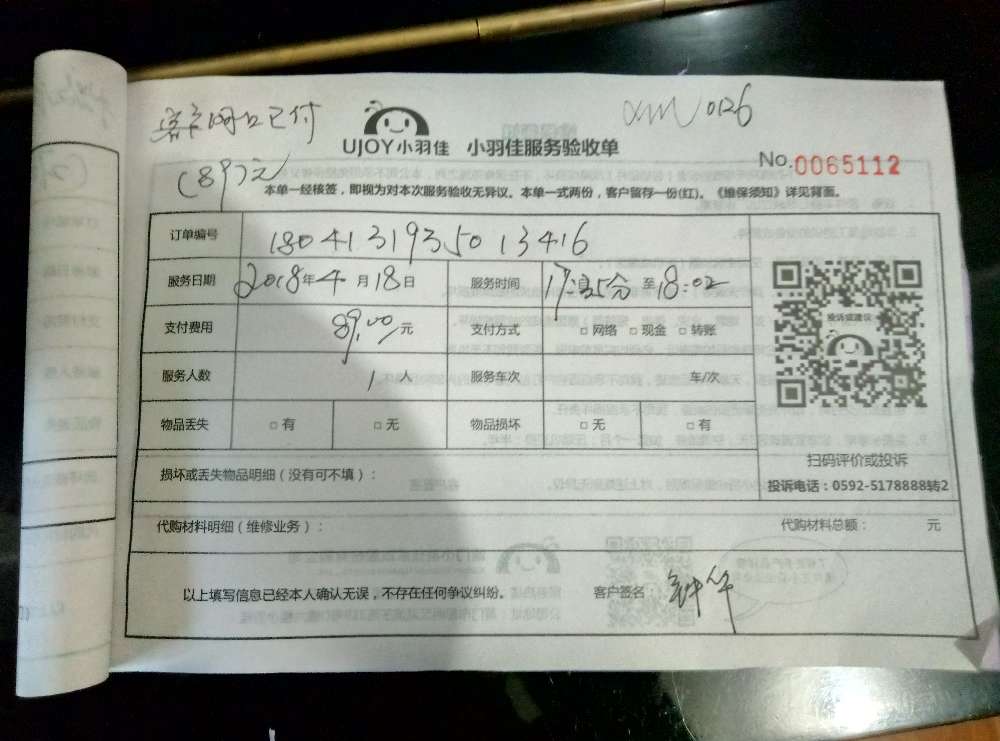 已付
xm 0126
UJOY小羽佳 小羽佳服务验收单
(89)元
No.0065112
本单一经核签，即视为对本次服务验收无异议。本单一式两份，客户留存一份(红)。《维保须知》详见背面。
订单编号 1804131935013416
服务日期 2018年4月18日 服务时间 至18:02
支付费用 89.00元 支付方式 □网络 □现金 □转账
投诉或建议
服务人数 1人 服务车次 车/次
物品丢失 □有 □无 物品损坏 □无 □有
扫码评价或投诉
损坏或丢失物品明细（没有可不填）：
投诉电话：0592-5178888转2
代购材料明细（维修业务）： 代购材料总额： 元
以上填写信息已经本人确认无误，不存在任何争议纠纷。 客户签名：